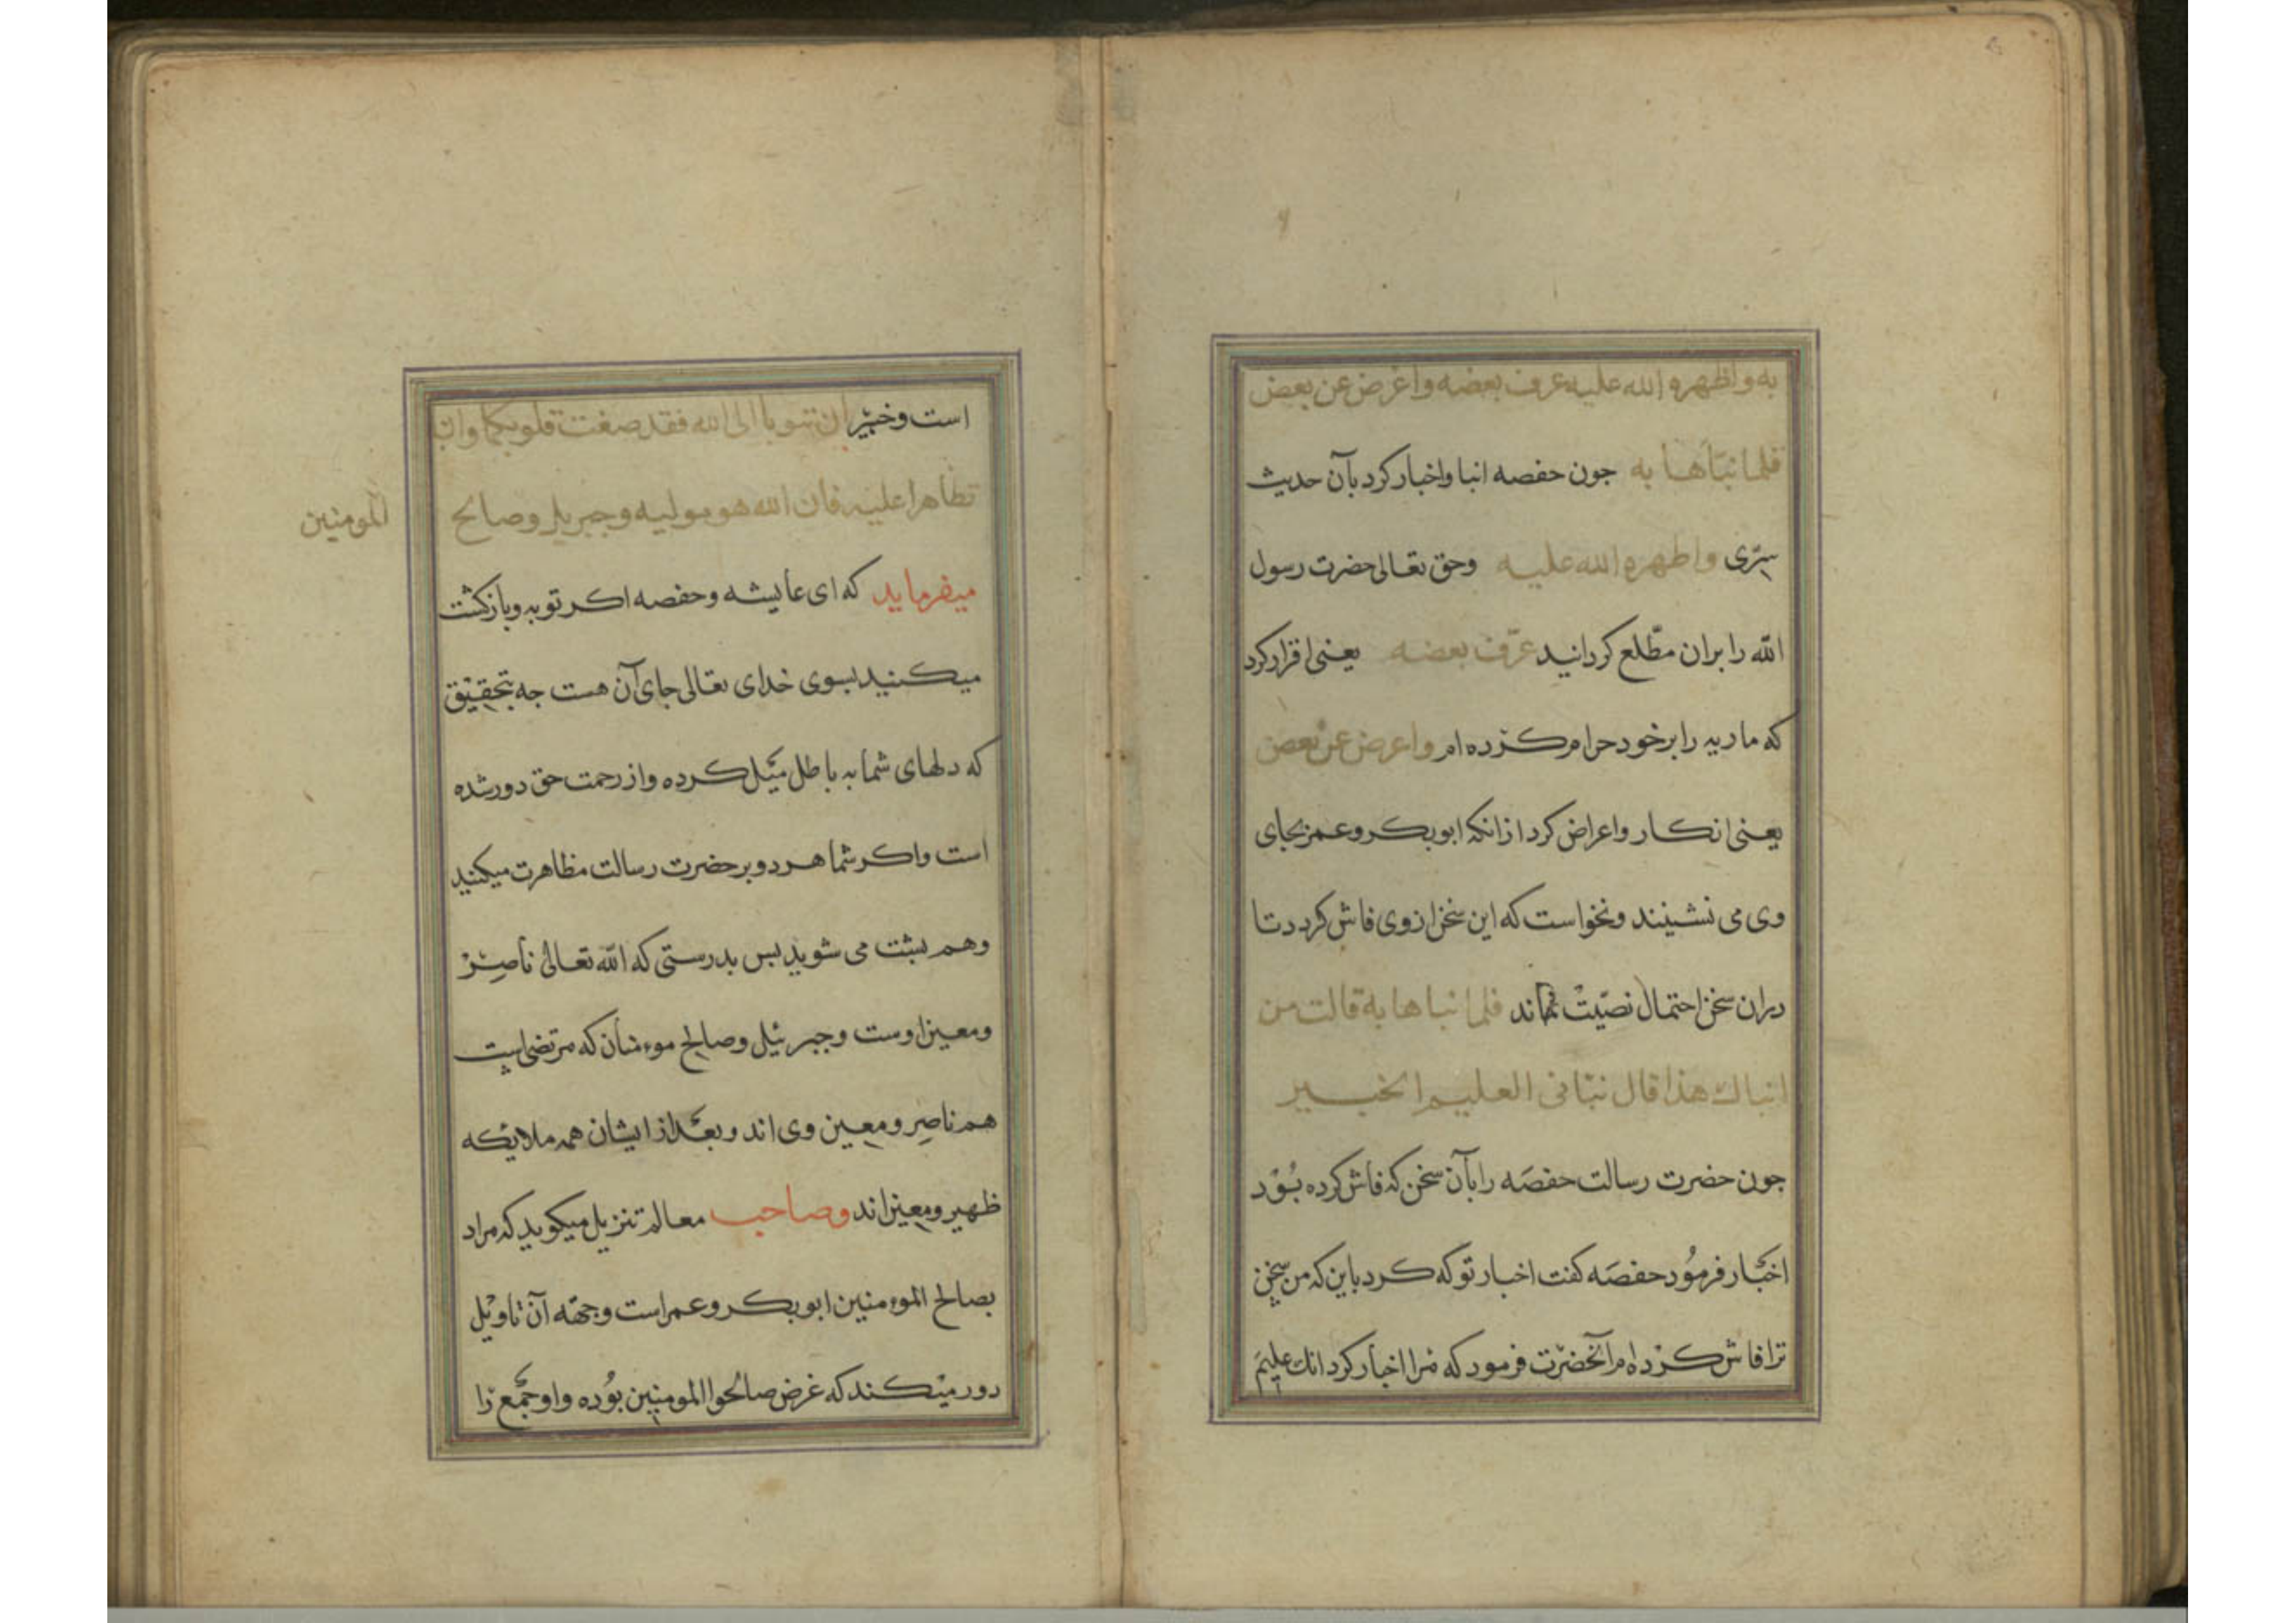 به واظهره الله عليه عرف بعضه واعرض عن بعض
فلما نبّأها به جون حفصه انبا واخبار کرد بآن حدیث
سِرّی واظهره الله علیه وحق تعالی حضرت رسول
الله را بران مطّلع کردانید عرّف بعضه یعنی اقرار کرد
که ماریه را بر خود حرام کرده ام واعرض عن بعض
یعنی انکار واعراض کرد ازانکه ابوبکر وعمر بجای
وی می نشینند ونخواست که این سخن ازوی فاش کردد تا
دران سخن احتمال نصیّت نماند فلما نباها به قالت من
انباك هذا قال نبّانی العلیم الخبیر
جون حضرت رسالت حفصَه را بآن سخن که فاش کرده بُوْد
اخبار فرمُود حفصَه کفت اخبار تو که کرد باین که من سخن
ترا فاش کرده ام آنحضرت فرمود که مرا اخبار کرد انك علیم
است وخبیر ان تتوبا الی الله فقد صغت قلوبکما وان
تظاهرا علیه فان الله هو مولیه وجبریل وصالح
المومنین
میفرماید که ای عایشه وحفصه اکر توبه وبازکشت
میکنید بسوی خدای تعالی جای آن هست جه بتحقیق
که دلهای شما به باطل میل کرده واز رحمت حق دور شده
است واکر شما هر دو بر حضرت رسالت مظاهرت میکنید
وهم بشت می شوید بس بدرستی که الله تعالی ناصِر
ومعین اوست وجبرئیل وصالح موءمنان که مرتضی است
هم ناصِر ومعین وی اند وبعد از ایشان همه ملایکه
ظهیر ومعین اند وصاحب معالم تنزیل میکوید که مراد
بصالح الموءمنین ابوبکر وعمر است وجهه آن تاویل
دور میکند که غرض صالحوا المومنین بوُده واو جمع را